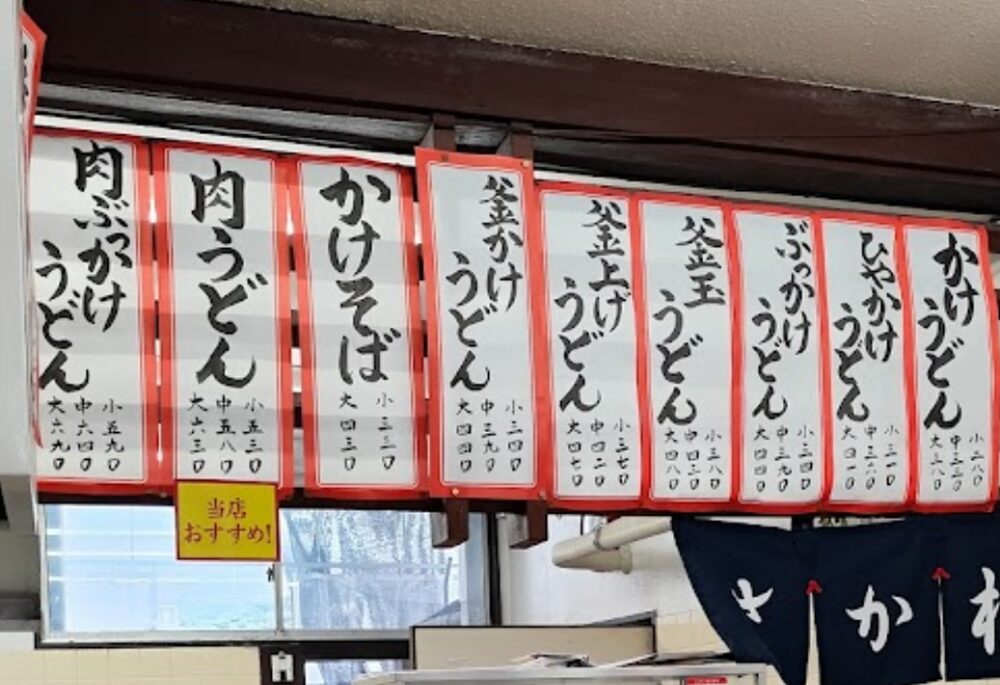 かけ
うどん
小二八〇
中三三〇
大三八〇
ひやかけ
うどん
小三一〇
中三六〇
大四一〇
ぶっかけ
うどん
小三四〇
中三九〇
大四四〇
釜玉
うどん
小三八〇
中四三〇
大四八〇
釜上げ
うどん
小三七〇
中四二〇
大四七〇
釜かけ
うどん
小三四〇
中三九〇
大四四〇
かけそば
小三三〇
大四三〇
肉うどん
小五三〇
中五八〇
大六三〇
肉ぶっかけ
うどん
小五九〇
中六四〇
大六九〇
当店
おすすめ!
さか